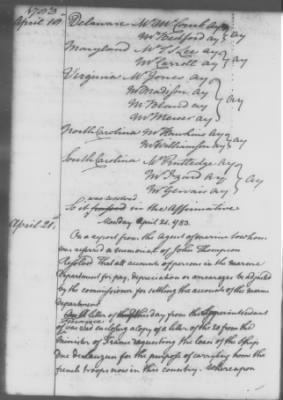 1783
April 18
Delaware Mr McComb ay
Mr Bedford ay } ay
Maryland Mr T S Lee ay
Mr Carroll ay } ay
Virginia Mr Jones ay
Mr Madison ay
Mr Bland ay
Mr Mercer ay } ay
North Carolina Mr Hawkins ay
Mr Williamson ay } ay
South Carolina Mr Rutledge ay
Mr Izard ay
Mr Gervais ay } ay
So it was resolved in the Affirmative
April 21
Monday April 21. 1783.
On a report from the Agent of marine to whom
was referred a memorial of John Thompson
Resolved That all accounts of persons in the marine
department for pay, depreciation or
by the commissioner for settling the accounts of the marine
department
A letter of day from the Superintendant
of finance was enclosing a copy of a letter of the 20 from the
Minister of France requesting the loan of the Ship
Duc de Lauzun for the purpose of carrying home the
french troops now in this country. Whereupon